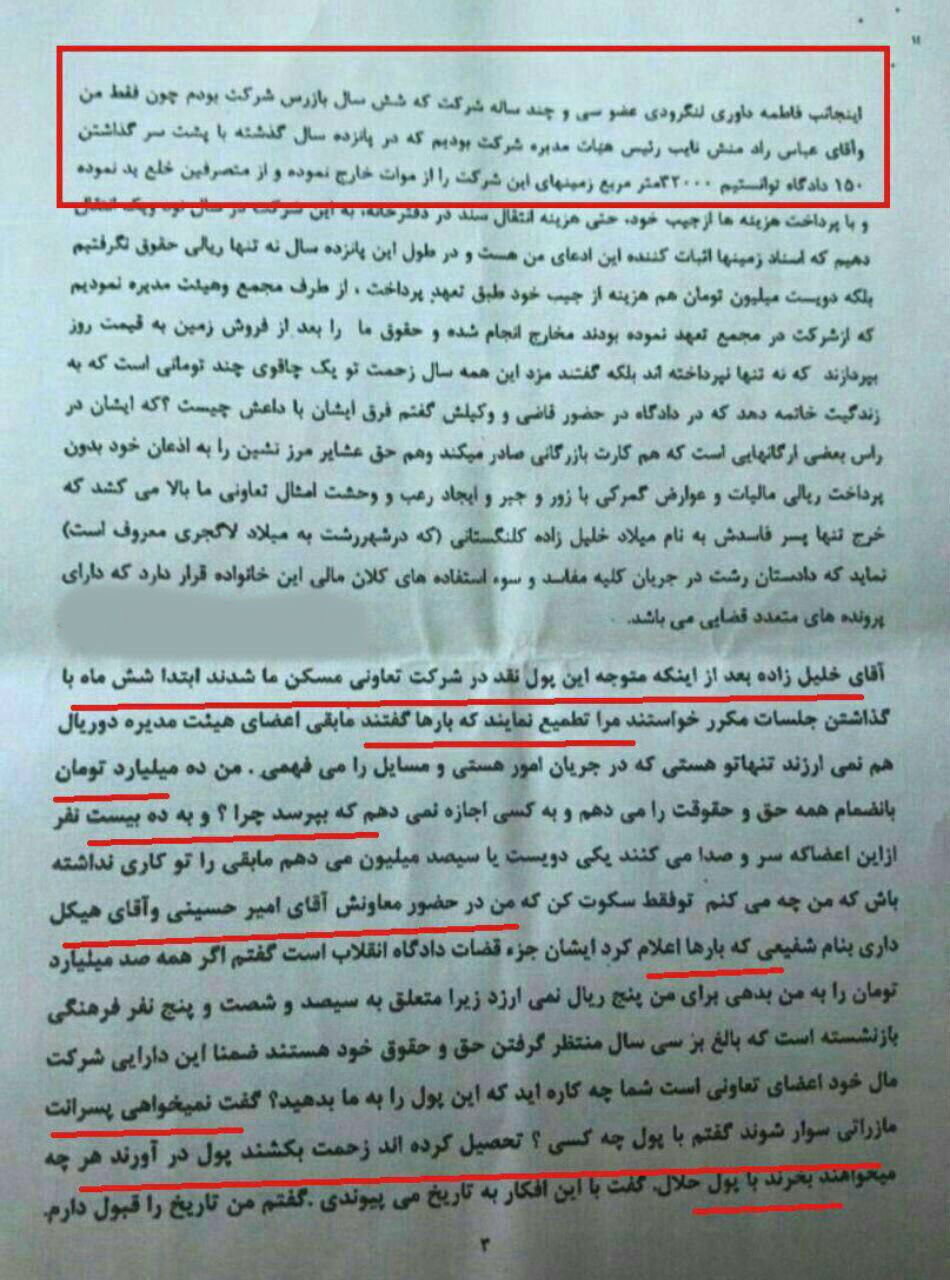 اینجانب فاطمه داوری لنگرودی عضو سی و چند ساله شرکت که شش سال بازرس شرکت بودم چون فقط من
وآقای عباس راد منش نایب رئیس هیات مدیره شرکت بودیم که در پانزده سال گذشته با پشت سر گذاشتن
۱۵۰ دادگاه توانستیم ۳۲۰۰۰متر مربع زمینهای این شرکت را از موات خارج نموده و از متصرفین خلع ید نموده
و با پرداخت هزینه ها ازجیب خود، حتی هزینه انتقال سند در دفترخانه، به این شرکت در سال نود ویک انتقال
دهیم که اسناد زمینها اثبات کننده این ادعای من هست و در طول این پانزده سال نه تنها ریالی حقوق نگرفتیم
بلکه دویست میلیون تومان هم هزینه از جیب خود طبق تعهد پرداخت ، از طرف مجمع وهیئت مدیره نمودیم
که ازشرکت در مجمع تعهد نموده بودند مخارج انجام شده و حقوق ما را بعد از فروش زمین به قیمت روز
بپردازند که نه تنها نپرداخته اند بلکه گفتند مزد این همه سال زحمت تو یک چاقوی چند تومانی است که به
زندگیت خاتمه دهد که در دادگاه در حضور قاضی و وکیلش گفتم فرق ایشان با داعش چیست ؟که ایشان در
راس بعضی ارگانهایی است که هم کارت بازرگانی صادر میکند وهم حق عشایر مرز نشین را به اذعان خود بدون
پرداخت ریالی مالیات و عوارض گمرکی با زور و جبر و ایجاد رعب و وحشت امثال تعاونی ما بالا می کشد که
خرج تنها پسر فاسدش به نام میلاد خلیل زاده کلنگستانی (که درشهررشت به میلاد لاگجری معروف است)
نماید که دادستان رشت در جریان کلیه مفاسد و سوء استفاده های کلان مالی این خانواده قرار دارد که دارای
پرونده های متعدد قضایی می باشد.
آقای خلیل زاده بعد از اینکه متوجه این پول نقد در شرکت تعاونی مسکن ما شدند ابتدا شش ماه با
گذاشتن جلسات مکرر خواستند مرا تطمیع نمایند که بارها گفتند مابقی اعضای هیئت مدیره دوریال
هم نمی ارزند تنهاتو هستی که در جریان امور هستی و مسایل را می فهمی . من ده میلیارد تومان
بانضمام همه حق و حقوقت را می دهم و به کسی اجازه نمی دهم که بپرسد چرا ؟ و به ده بیست نفر
ازاین اعضاکه سر و صدا می کنند یکی دویست یا سیصد میلیون می دهم مابقی را تو کاری نداشته
باش که من چه می کنم توفقط سکوت کن که من در حضور معاونش آقای امیر حسینی وآقای هیکل
داری بنام شفیعی که بارها اعلام کرد ایشان جزء قضات دادگاه انقلاب است گفتم اگر همه صد میلیارد
تومان را به من بدهی برای من پنج ریال نمی ارزد زیرا متعلق به سیصد و شصت و پنج نفر فرهنگی
بازنشسته است که بالغ بز سی سال منتظر گرفتن حق و حقوق خود هستند ضمنا این دارایی شرکت
مال خود اعضای تعاونی است شما چه کاره اید که این پول را به ما بدهید؟ گفت نمیخواهی پسرانت
مازراتی سوار شوند گفتم با پول چه کسی ؟ تحصیل کرده اند زحمت بکشند پول در آورند هر چه
میخواهند بخرند با پول حلال. گفت با این افکار به تاریخ می پیوندی .گفتم من تاریخ را قبول دارم.
۳